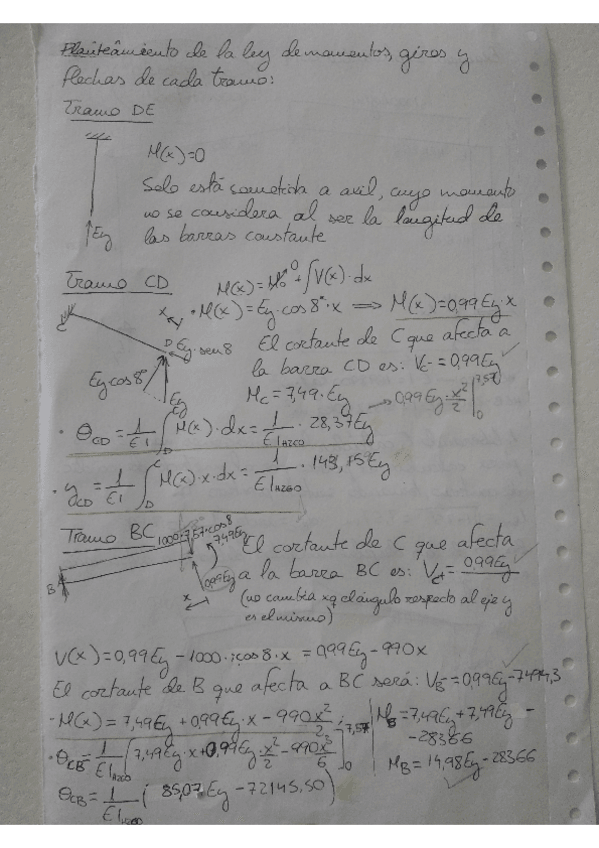 Planteamiento de la ley de momentos, giros y
flechas de cada tramo:
Tramo DE
M(x)=0
Solo está sometida a axil, cuyo momento
no se considera al ser la longitud de
las barras constante
Ey
Tramo CD
M(x)=M₀ 0 +∫V(x)·dx
x
• M(x)=Ey·cos8°·x ⟹ M(x)=0,99Ey·x
C
D Ey·sen8
El cortante de C que afecta a
la barra CD es: Vc=0,99Ey
Ey cos8°
Ey
Mc=7,49·Ey
→0,99Ey·x²/2 |₀^7,57
• θCD=1/EI ∫D M(x)·dx=1/EI_HZGO · 28,37Ey
• yCD=1/EI ∫D^C M(x)·x·dx=1/EI_HZGO · 143,15Ey
Tramo BC
1000·7,57·cos8
7,49Ey
El cortante de C que afecta
a la barra BC es: Vc+=0,99Ey
B
0,99Ey
x
(no cambia xq el ángulo respecto al eje y
es el mismo)
V(x)=0,99Ey-1000·cos8·x=0,99Ey-990x
El cortante de B que afecta a BC será: VB=0,99Ey-7494,3
• M(x)=7,49Ey+0,99Ey·x-990x²/2;
MB=7,49Ey+7,49Ey-
-28366
• θCB=1/EI_HZGO [7,49Ey·x+0,99Ey·x²/2-990x³/6]₀^7,57
MB=14,98Ey-28366
θCB=1/EI_HZGO (85,07Ey-72145,50)